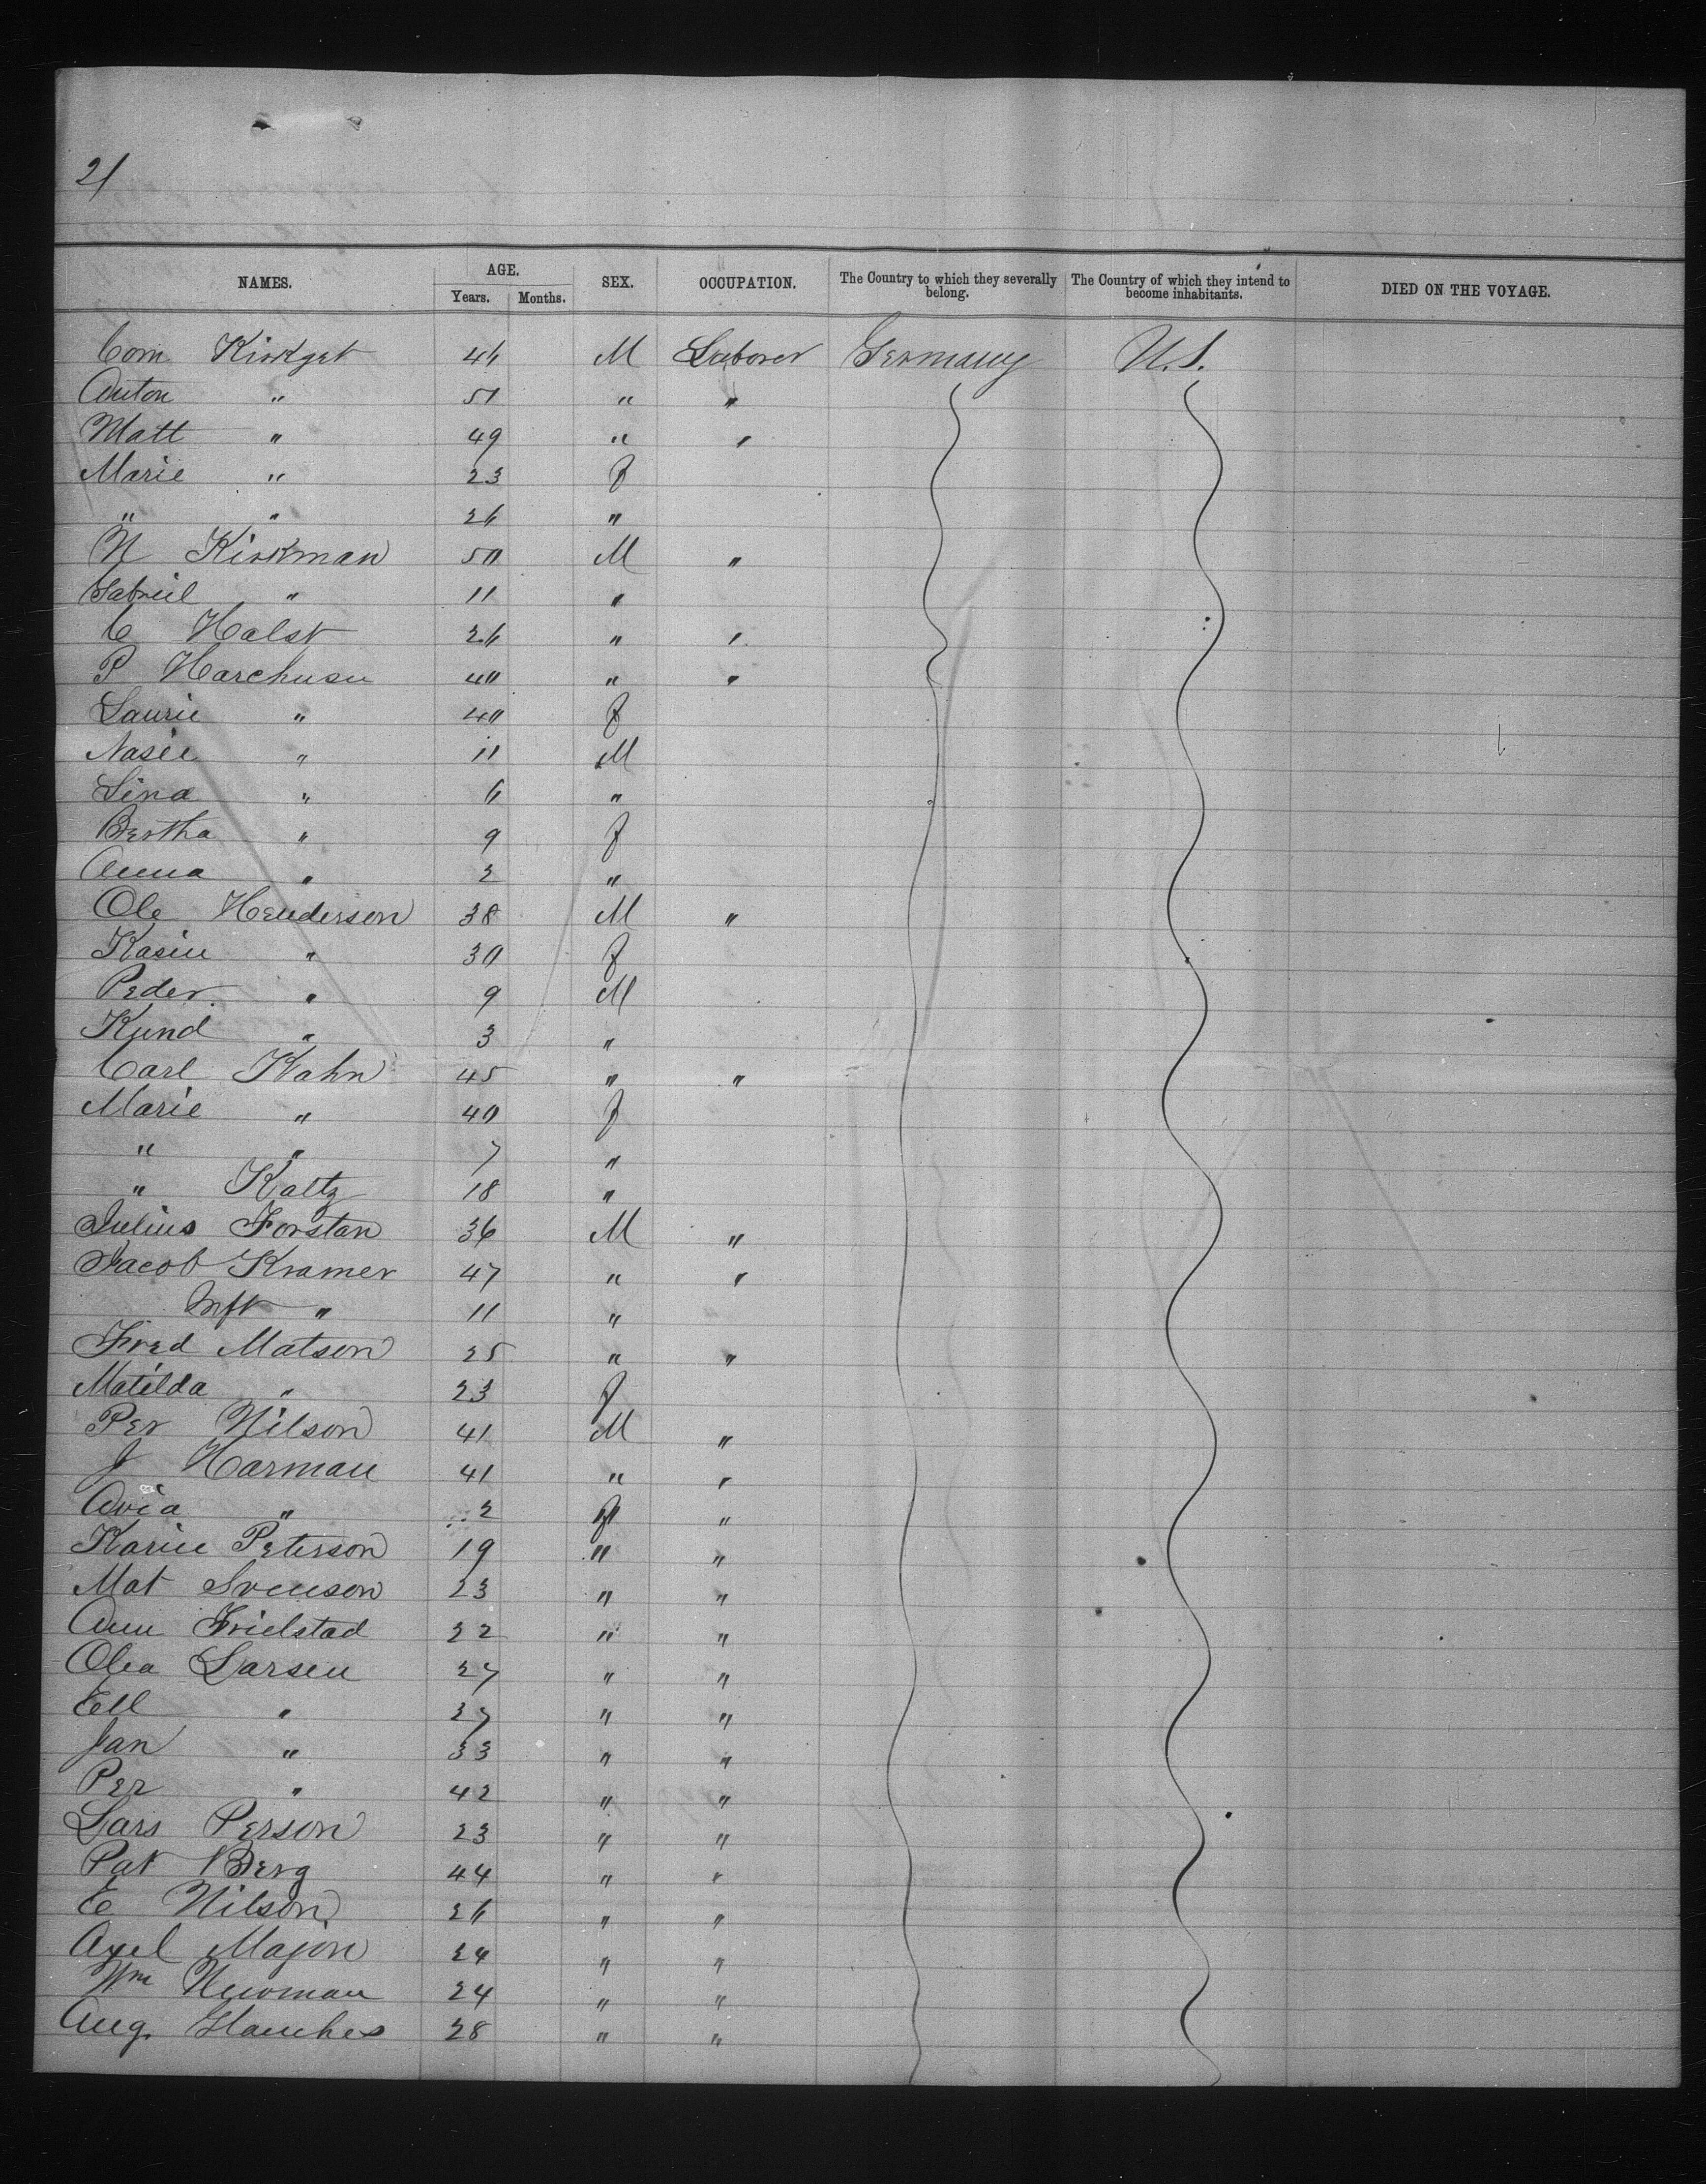 21
NAMES. AGE. Years. Months. SEX. OCCUPATION. The Country to which they severally belong. The Country of which they intend to become inhabitants. DIED ON THE VOYAGE.
Com Kirkget 46 M Laborer Germany U.S.
Anton " 51 " "
Matt " 49 " "
Marie " 23 f
" " 26 "
N Kirkman 50 M "
Gabriel " 11 "
C Halst 26 " "
P Harchusen 40 " "
Laurie " 40 f
Nasie " 11 M
Lina " 6 "
Bertha " 9 f
Anna " 2 "
Ole Henderson 38 M "
Kasin " 30 f
Peder " 9 M
Kund " 3 "
Carl Hahn 45 " "
Marie " 40 f
" " 7 "
" Kaltz 18 "
Julius Forstan 36 M "
Jacob Kramer 47 " "
Inft " 11 "
Fred Matson 25 " "
Matilda " 23 f
Per Nilson 41 M "
J Harman 41 " "
Avia " 2 f "
Karin Peterson 19 " "
Mat Svenson 23 " "
Ann Frielstad 22 " "
Olea Larsen 27 " "
Ell " 27 " "
Jan " 33 " "
Per " 42 " "
Lars Person 23 " "
Pat Berg 44 " "
E Nilson 26 " "
Axel Majon 24 " "
Wm Newman 24 " "
Aug. Hauches 28 " "